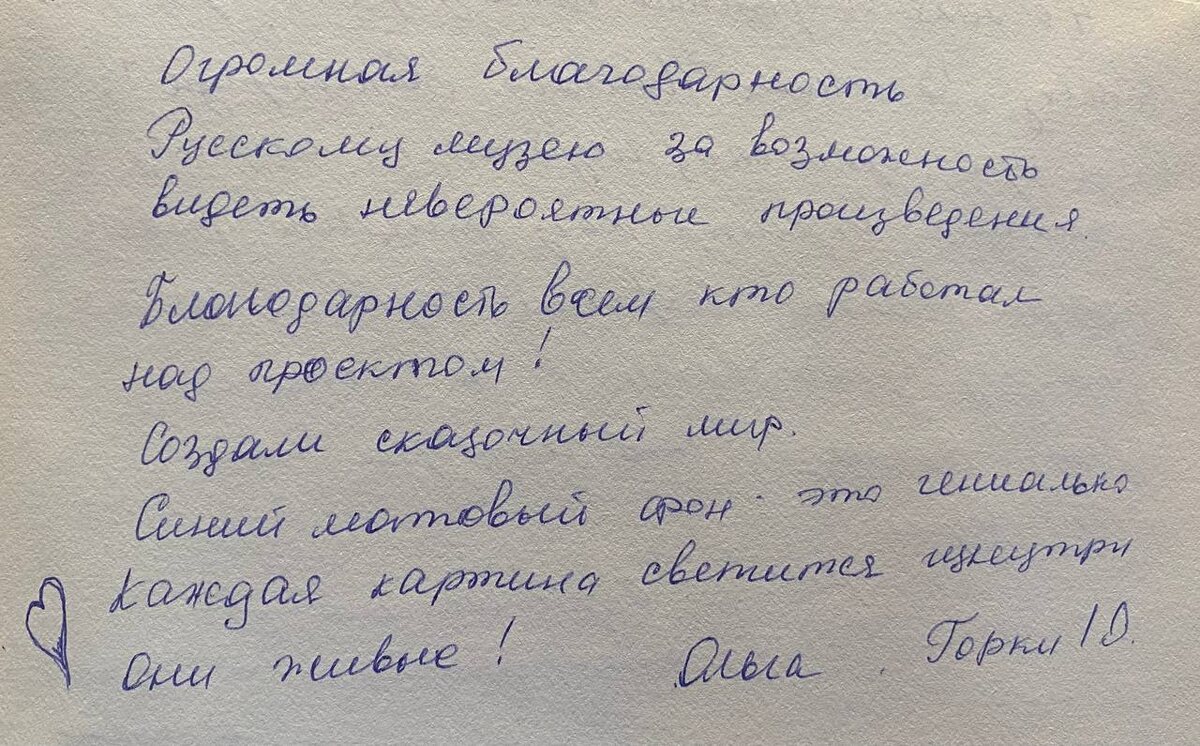 Огромная благодарность
Русскому музею за возможность
видеть невероятные произведения.
Благодарность всем кто работал
над проектом!
Создали сказочный мир.
Синий матовый фон - это гениально
Каждая картина светится изнутри
Они живые!
Ольга. Горки 10.